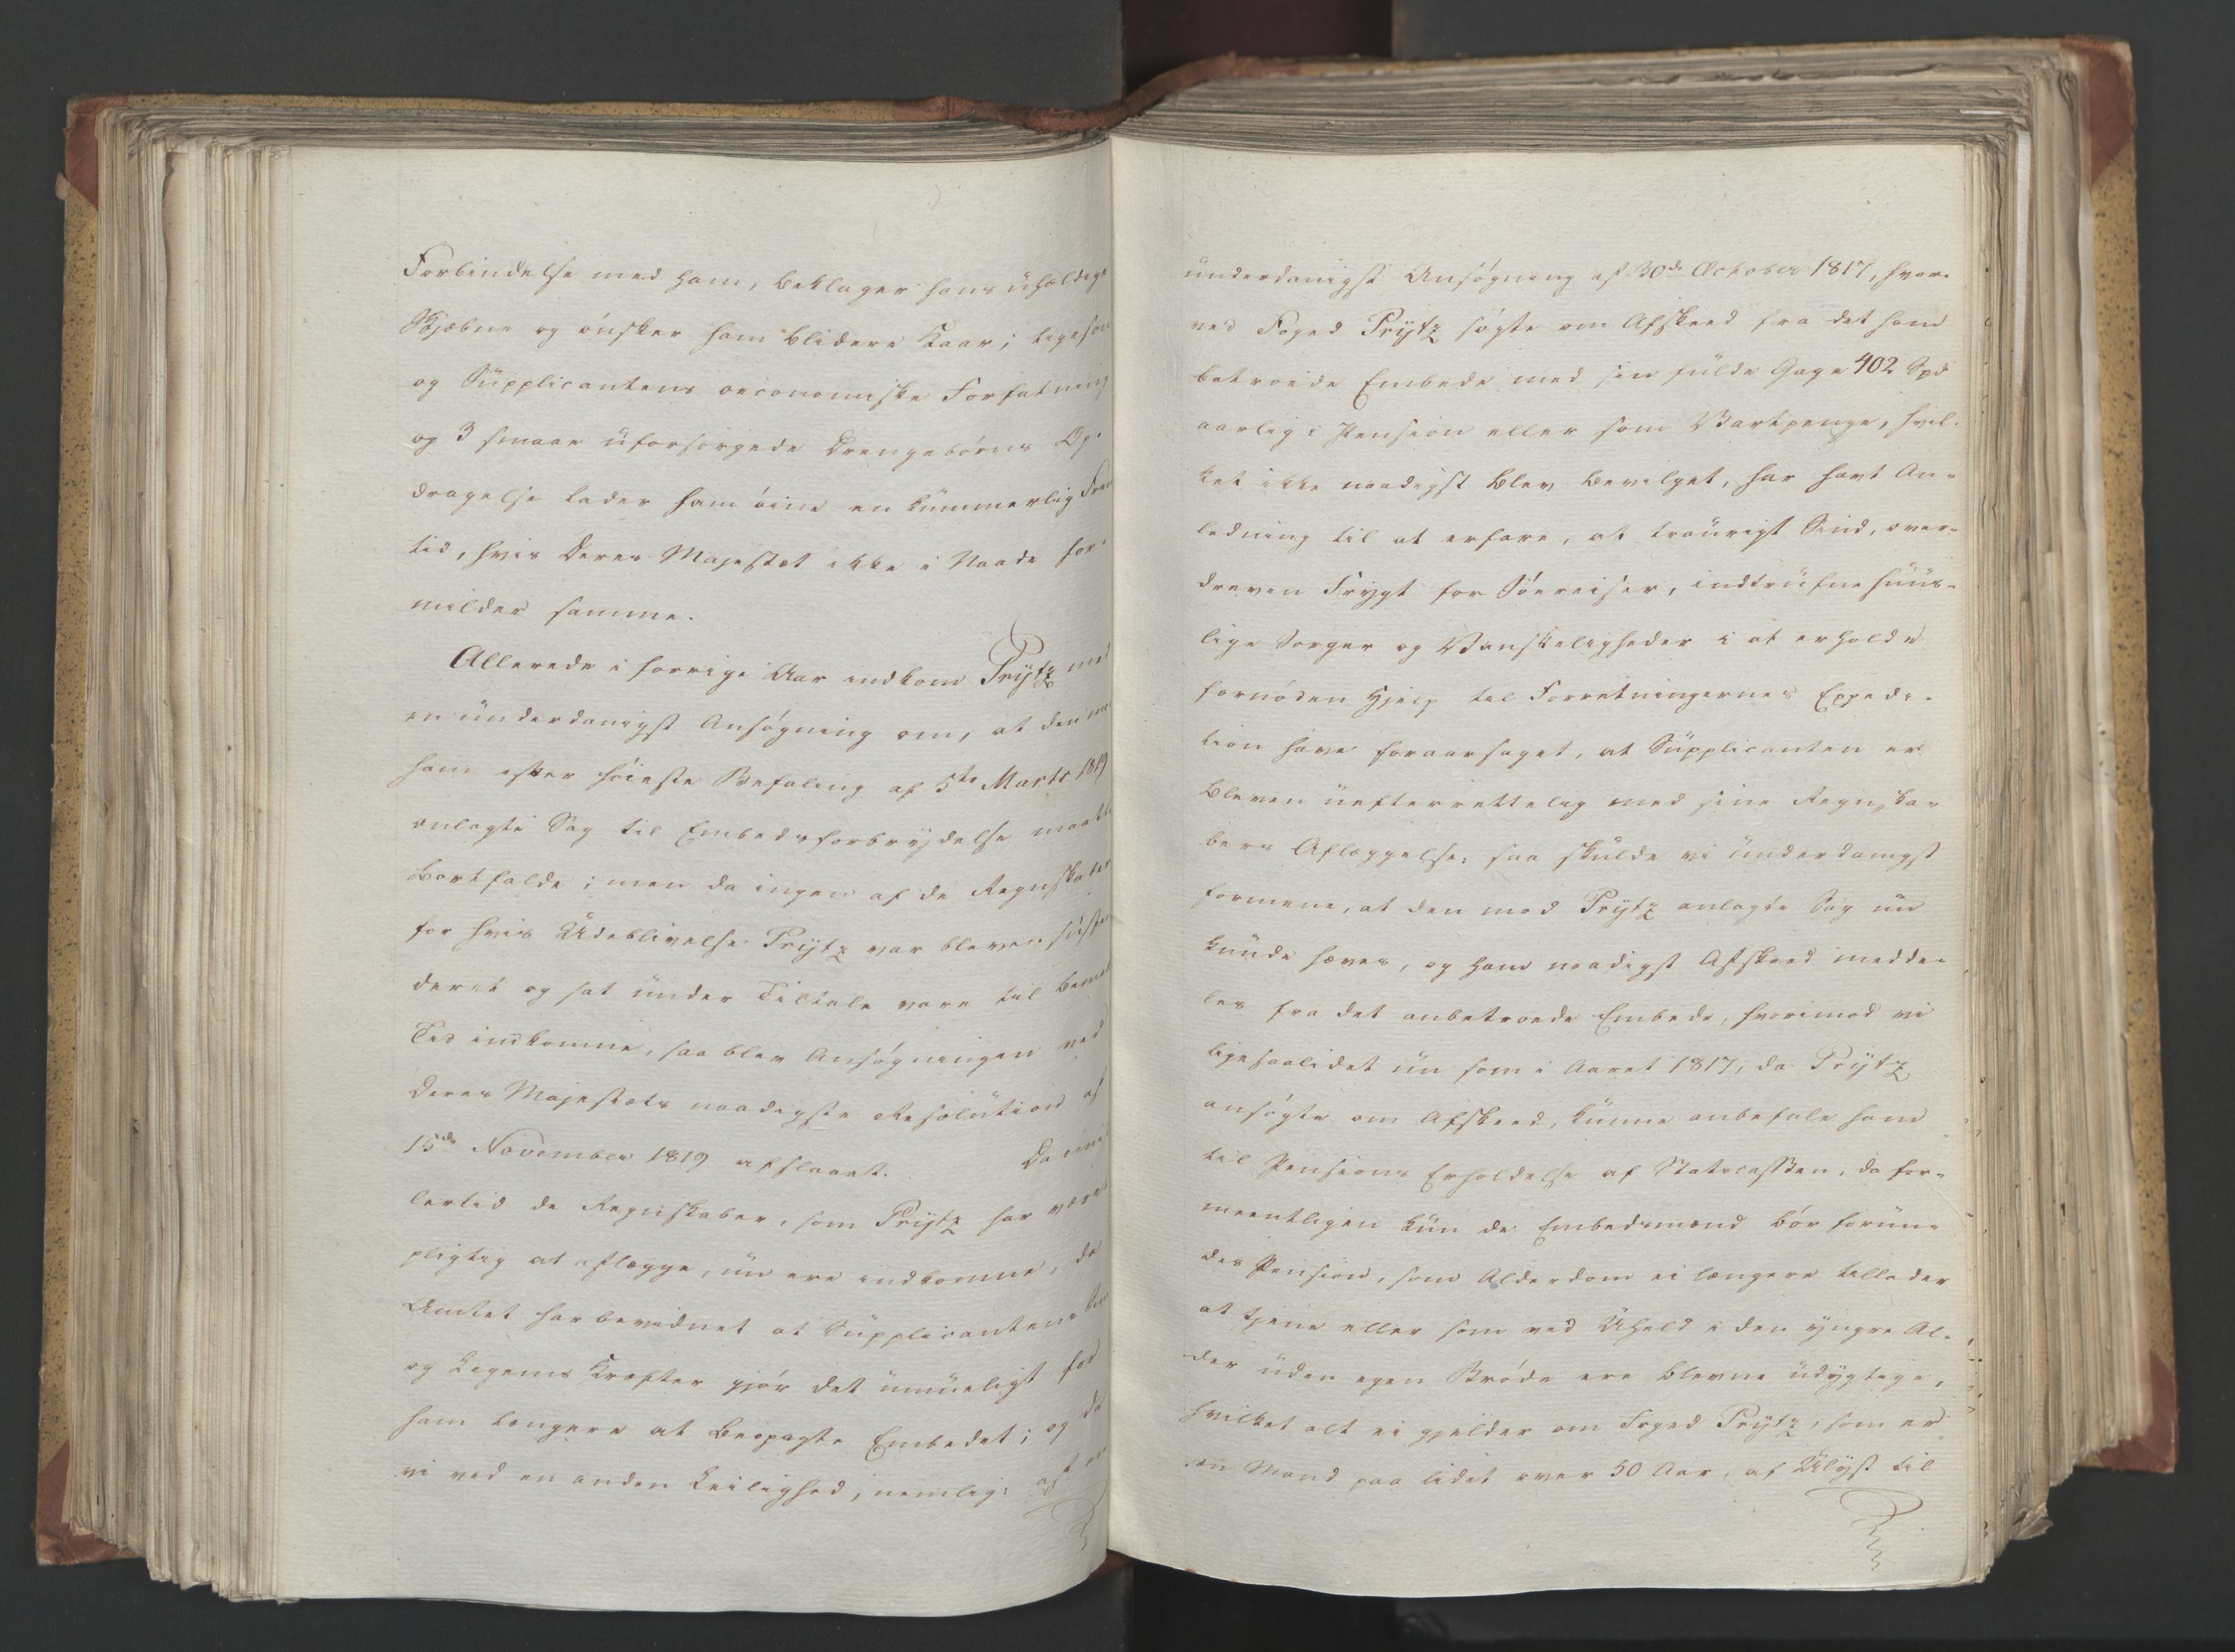 Forbindelse med ham, beklager hans uheldige
Skjæbne og ønsker ham blidere Kaar; ligesom
og Supplicantens oeconomiske Forfatning
og 3 smaae uforsørgede Drengebørns Op-
dragelse lader ham øine en kummerlig Frem
tid, hvis Deres Majestæt ikke i Naade for-
milder samme.
Allerede i forrige Aar indkom Prÿtz med
en underdanigst Ansøgning om, at den mod
ham efter høieste Befaling af 5te Marts 1819
anlagte Sag til Embedsforbrydelse maatte
bortfalde; men da ingen af de Regnskaber
for hvis Udeblivelse Prÿtz var bleven suspen
deret og sat under Tiltale vare til bemeldte
Tid indkomne, saa blev Ansøgningen ved
Deres Majestæts naadigste Resolution af
15de November 1819 afslaaet. Da imid
lertid de Regnskaber, som Prÿtz har været
pligtig at aflægge, nu ere indkomne, da
Amtet har bevidnet at Supplicantens
og Legems Kræfter gjør det umueligt for
ham længere at beopagte Embedet; og da
vi ved en anden Leilighed, nemlig:
underdanigst Ansøgning af 30de October 1817, hvor-
ved Foged Prÿtz søgte om Afskeed fra det ham
betroede Embede med sin fulde Gage 402 Spd
aarlig i Pension eller som Vartpenge, hvil-
ket ikke naadigst blev bevilget, har havt An-
ledning til at erfare, at traurigt Sind, over-
dreven Frygt for Søereiser, indtrufne huus-
lige Sorger og Vanskeligheder i at erholde
fornøden Hjelp til Forretningernes Expedi-
tion have foraarsaget, at Supplicanten er
bleven uefterrettelig med sine Regnska-
bers Aflæggelse: saa skulde vi underdanigst
formene, at den mod Prÿtz anlagte Sag nu
kunde hæves, og ham naadigst Afskeed medde-
les fra det anbetroede Embede, hvorimod vi
ligesaalidet nu som i Aaret 1817, da Prÿtz
ansøgte om Afskeed, kunne anbefale ham
til Pensions Erholdelse af Statscassen, da for-
meentligen kun de Embedsmænd bør forun-
des Pension, som Alderdom ei længere tillader
at tjene eller som ved Uheld i den yngre Al-
der uden egen Brøde ere blevne udygtige,
hvilket alt ei gjelder om Foged Prÿtz, som er
en Mand paa lidet over 50 Aar, af Ulyst til